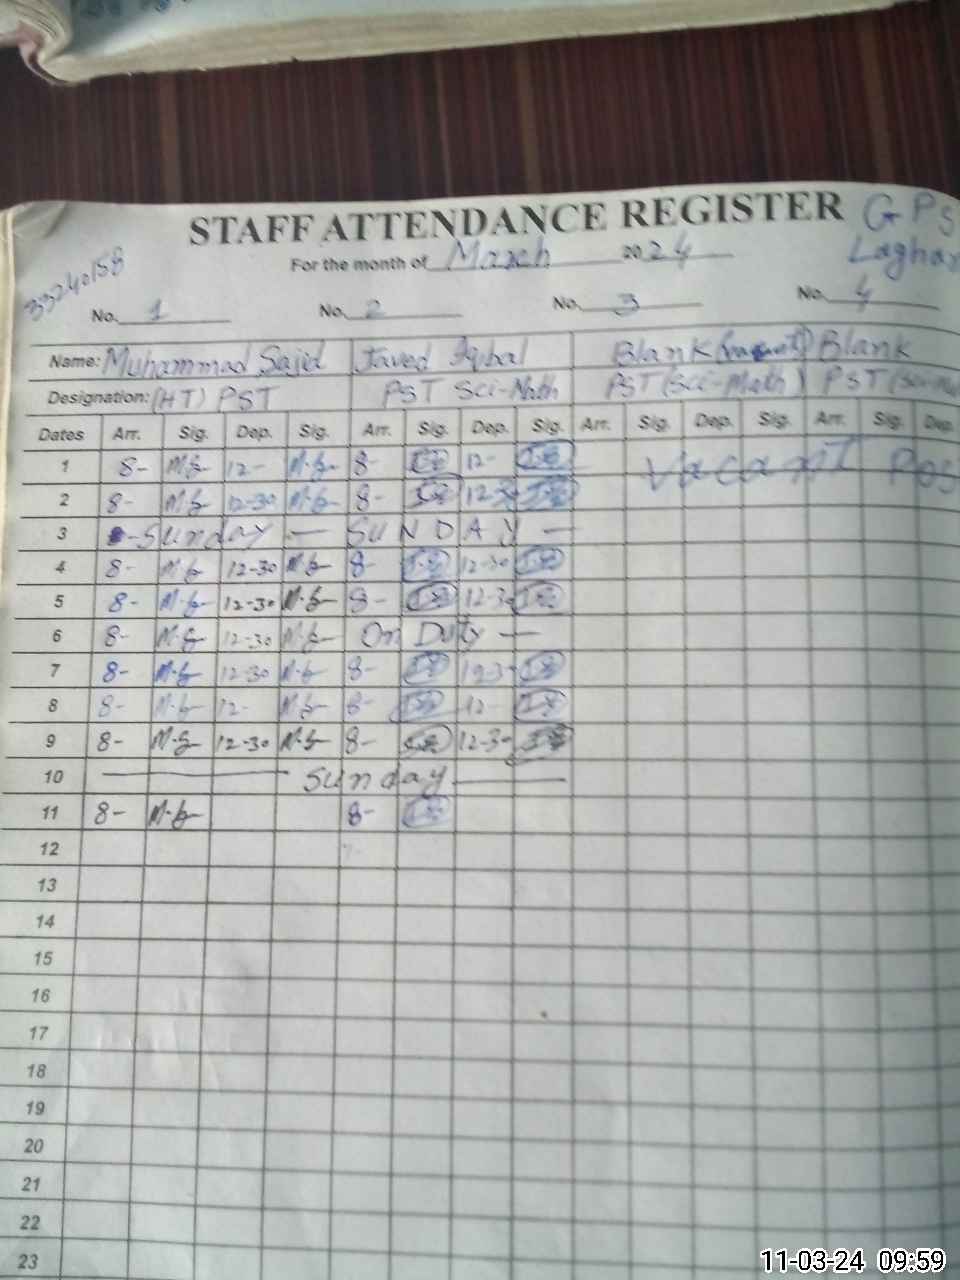 STAFF ATTENDANCE REGISTER GPS
For the month of March 2024
33240158
No. 1 No. 2 No. 3 No. 4
Name: Muhammad Sajid Javed Iqbal Blank (vacant) Blank
Designation: (HT) PST PST Sci-Math PST (Sci-Math) PST
Dates Arr. Sig. Dep. Sig. Arr. Sig. Dep. Sig. Arr. Sig. Dep. Sig. Arr. Sig. Dep.
1 8- M.S 12- M.S 8- 12- Vacant Pos
2 8- M.S 12-30 M.S 8- 12-30
3 -Sunday - SUNDAY -
4 8- M.S 12-30 M.S 8- 12-30
5 8- M.S 12-30 M.S 8- 12-30
6 8- M.S 12-30 M.S On Duty -
7 8- M.S 12-30 M.S 8- 12-3
8 8- M.S 12- M.S 8- 12
9 8- M.S 12-30 M.S 8- 12-30
10 Sunday
11 8- M.S 8-
12
13
14
15
16
17
18
19
20
21
22
23
11-03-24 09:59